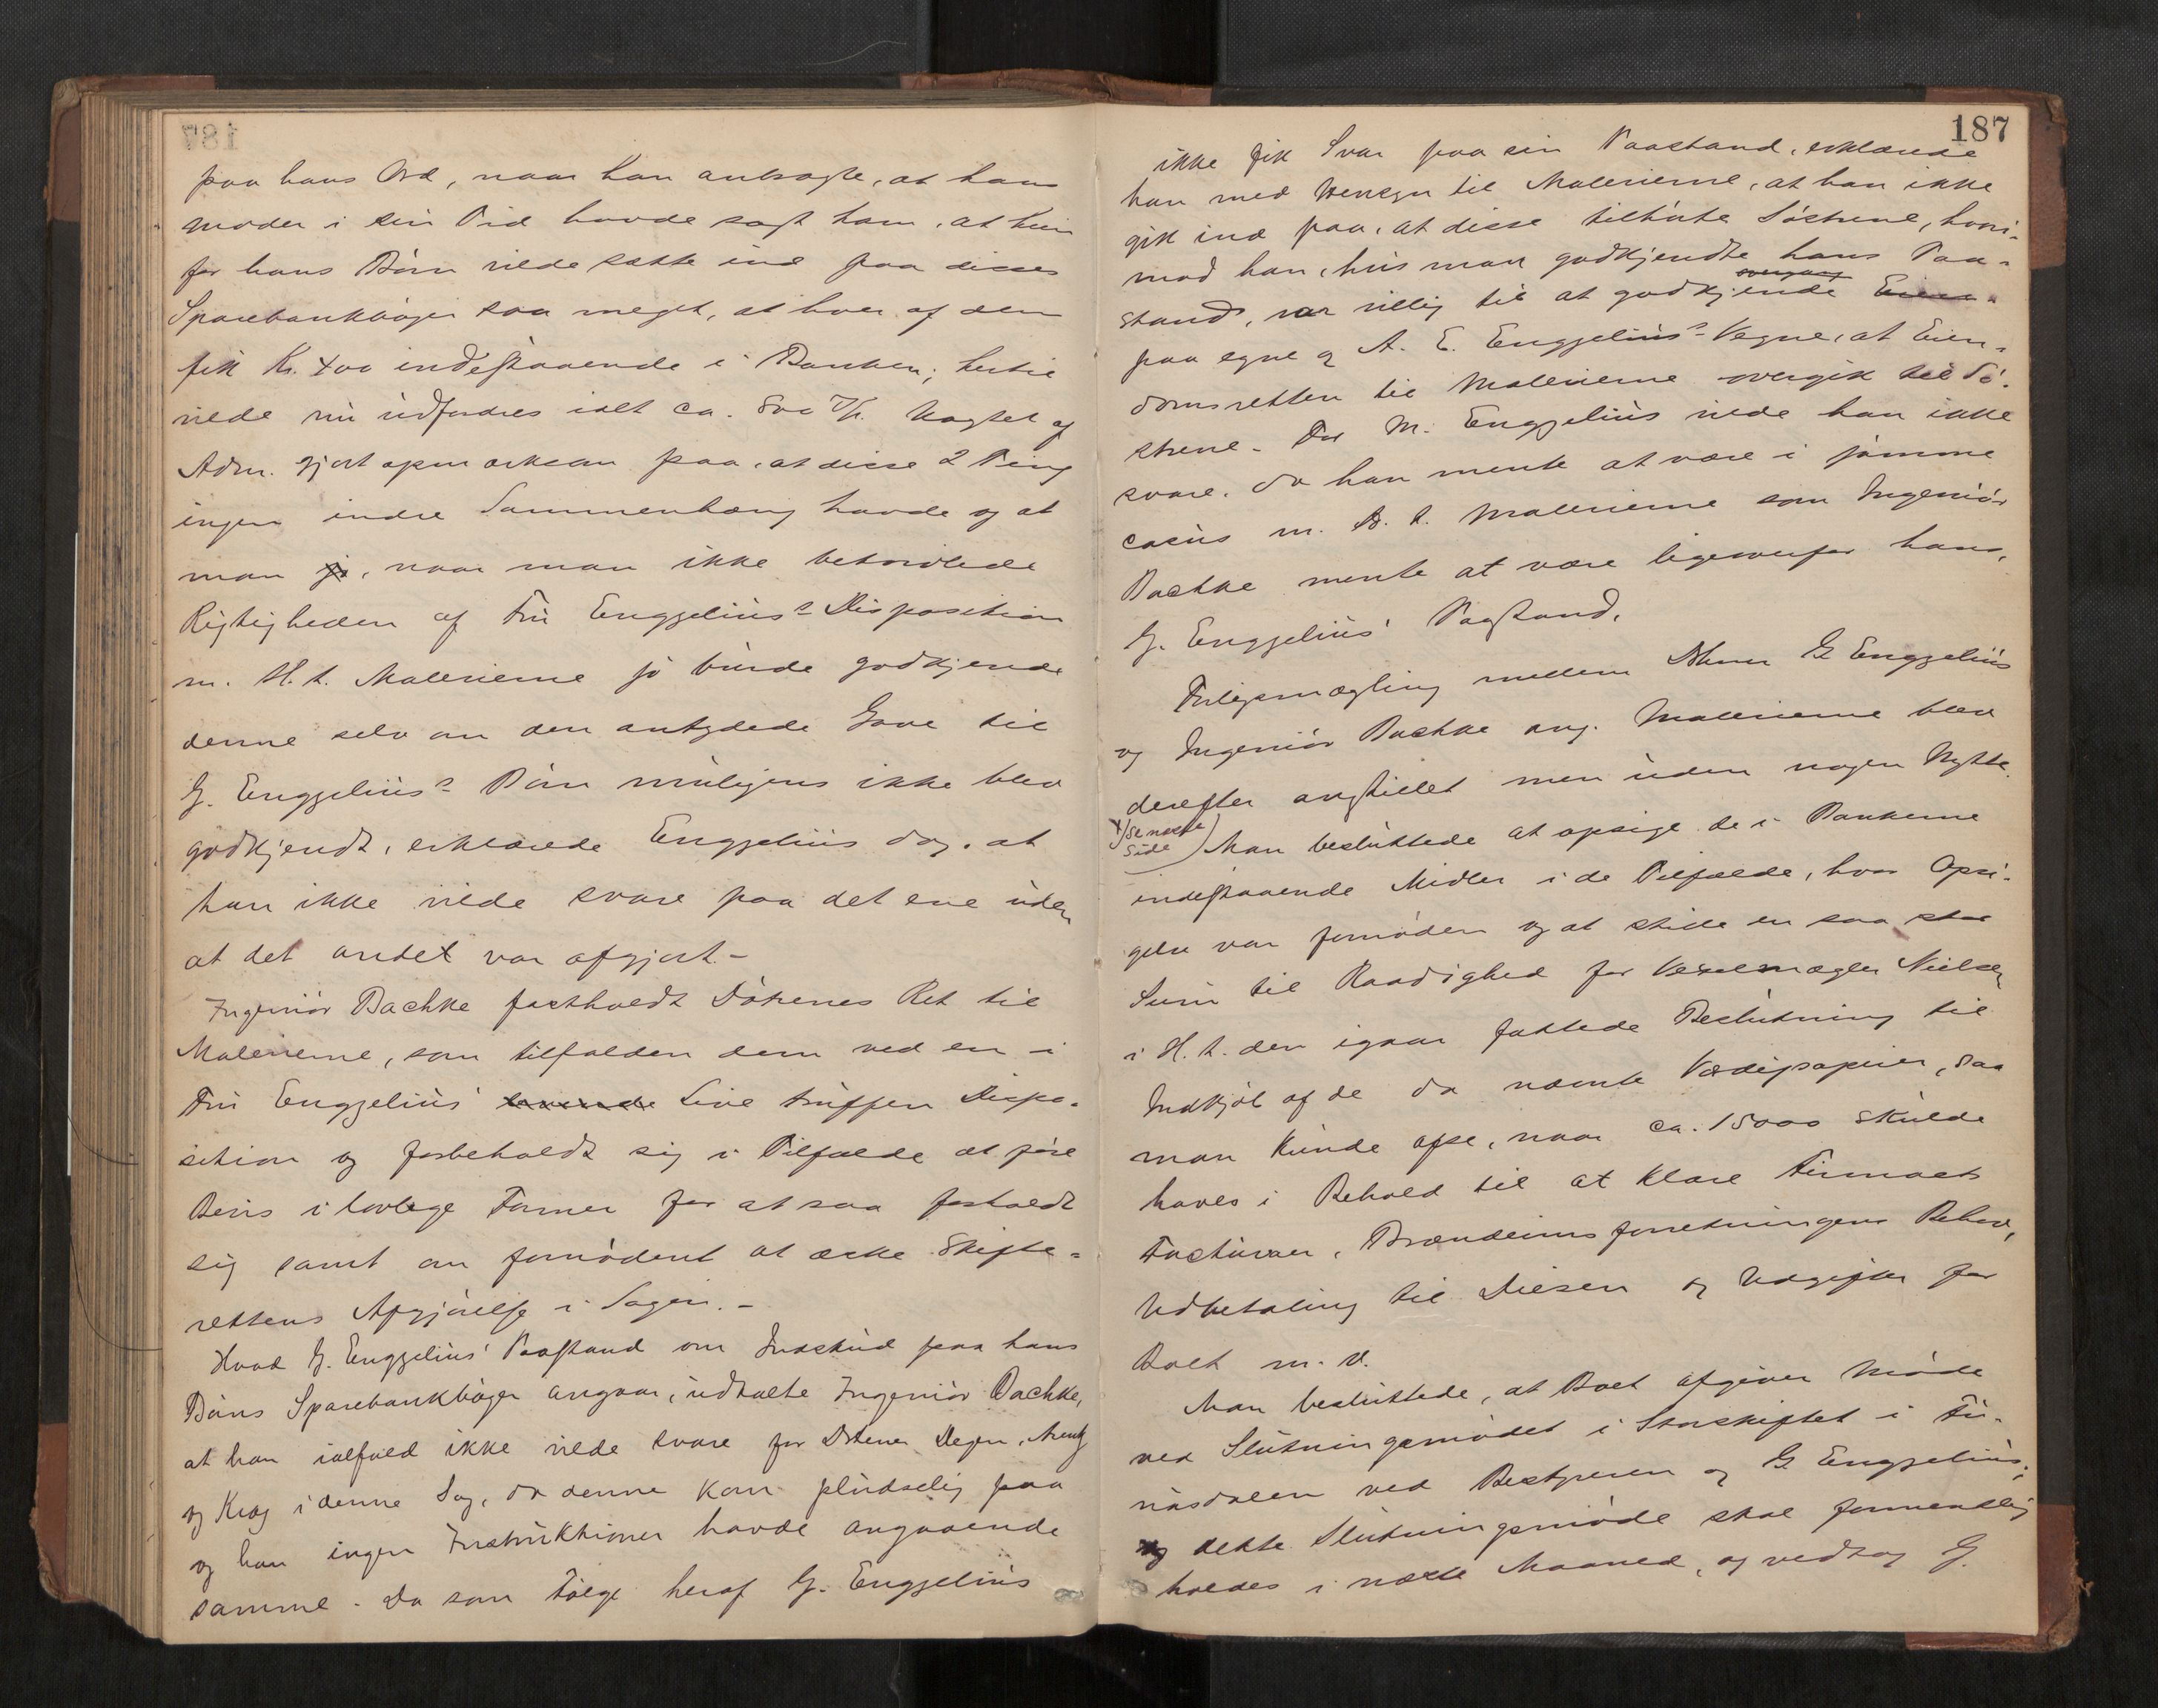 paa hans Ord, naar han antragte, at hans
moder i sin Tid havde sagt ham, at hun
for hans Børn vilde sætte ind paa disses
Sparebankbøger saa meget, at hver af dem
fik Kr. 400 indestaaende i Banken; hertil
vilde nu udfordres ialt ca. 800 Kr. Uagtet af
Adm. gjort opmærksom paa, at disse 2 Ting
ingen indre Sammenhæng havde og at
man jo, naar man ikke betvivlede
Rigtigheden af Fru Enggelius's Disposition
m. H. t. Malerierne jo burde godkjende
denne selv om den antydede Gave til
G. Enggelius's Børn muligens ikke blev
godkjendt, erklærede Enggelius dog, at
han ikke vilde svare paa det ene uden
at det andet var afgjort. -
Ingeniør Bachke fastholdt Døtrenes Ret til
Malerierne, som tilfalden dem ved en i
Fru Enggelius' levende Live truffen Dispo-
sition og forbeholdt sig i Tilfælde at føre
Bevis i lovlige Former for at saa forholdt
sig samt om fornødent at æske Skifte-
rettens Afgjørelse i Sagen. -
Hvad G. Enggelius' Paastand om Indskud paa hans
Børns Sparebankbøger angaar, udtalte Ingeniør Bachke,
at han ialfald ikke vilde svare for Dhrr
og Krag i denne Sag, da denne kom pludselig paa
og han ingen Instruktioner havde angaaende
samme. Da som Følge heraf G. Enggelius
187
ikke fik Svar paa sin Paastand, erklærede
han med Hensyn til Malerierne, at han ikke
gik ind paa, at disse tilhørte Søstrene, hvori-
mod han, hvis man godkjendte hans Paa-
overgang
stand, var villig til at godkjende Eien-
paa egne og A. E. Enggelius's Vegne, at Eien-
domsretten til Malerierne overgik til Sø-
strene. For M. Enggelius vilde han ikke
svare, da han mente at være i samme
casus m. H. t. Malerierne som Ingeniør
Bachke mente at være ligeoverfor hans,
G. Enggelius' Paastand.
Forligsmægling mellem Dhrr G Enggelius
og Ingeniør Bachke ang. Malerierne blev
derefter anstillet men uden nogen Nytte.
x) Se næste
Side
Man besluttede at opsige de i Bankerne
indestaaende Midler i de Tilfælde, hvor Opsi-
gelse var fornøden og at stille en saa stor
Sum til Raadighed for Vexelmægler Nielsen
i H. t. den igaar fattede Beslutning til
Indkjøb af de da nævnte Værdipapirer, saa
man kunde afse, naar ca. 15000 skulde
haves i Behold til at klare Firmaets
Facturaer, Brændevinsforretningens Behov,
Udbetaling til Diesen og Udgifter for
Boet m. v.
Man besluttede, at Boet afgiver Møde
ved Slutningsmødet i Storskiftet i Fu-
nasdalen ved Bestyreren og G Enggelius;
og dette Slutningsmøde skal formentlig
holdes i næste Maaned, og vedtog G.